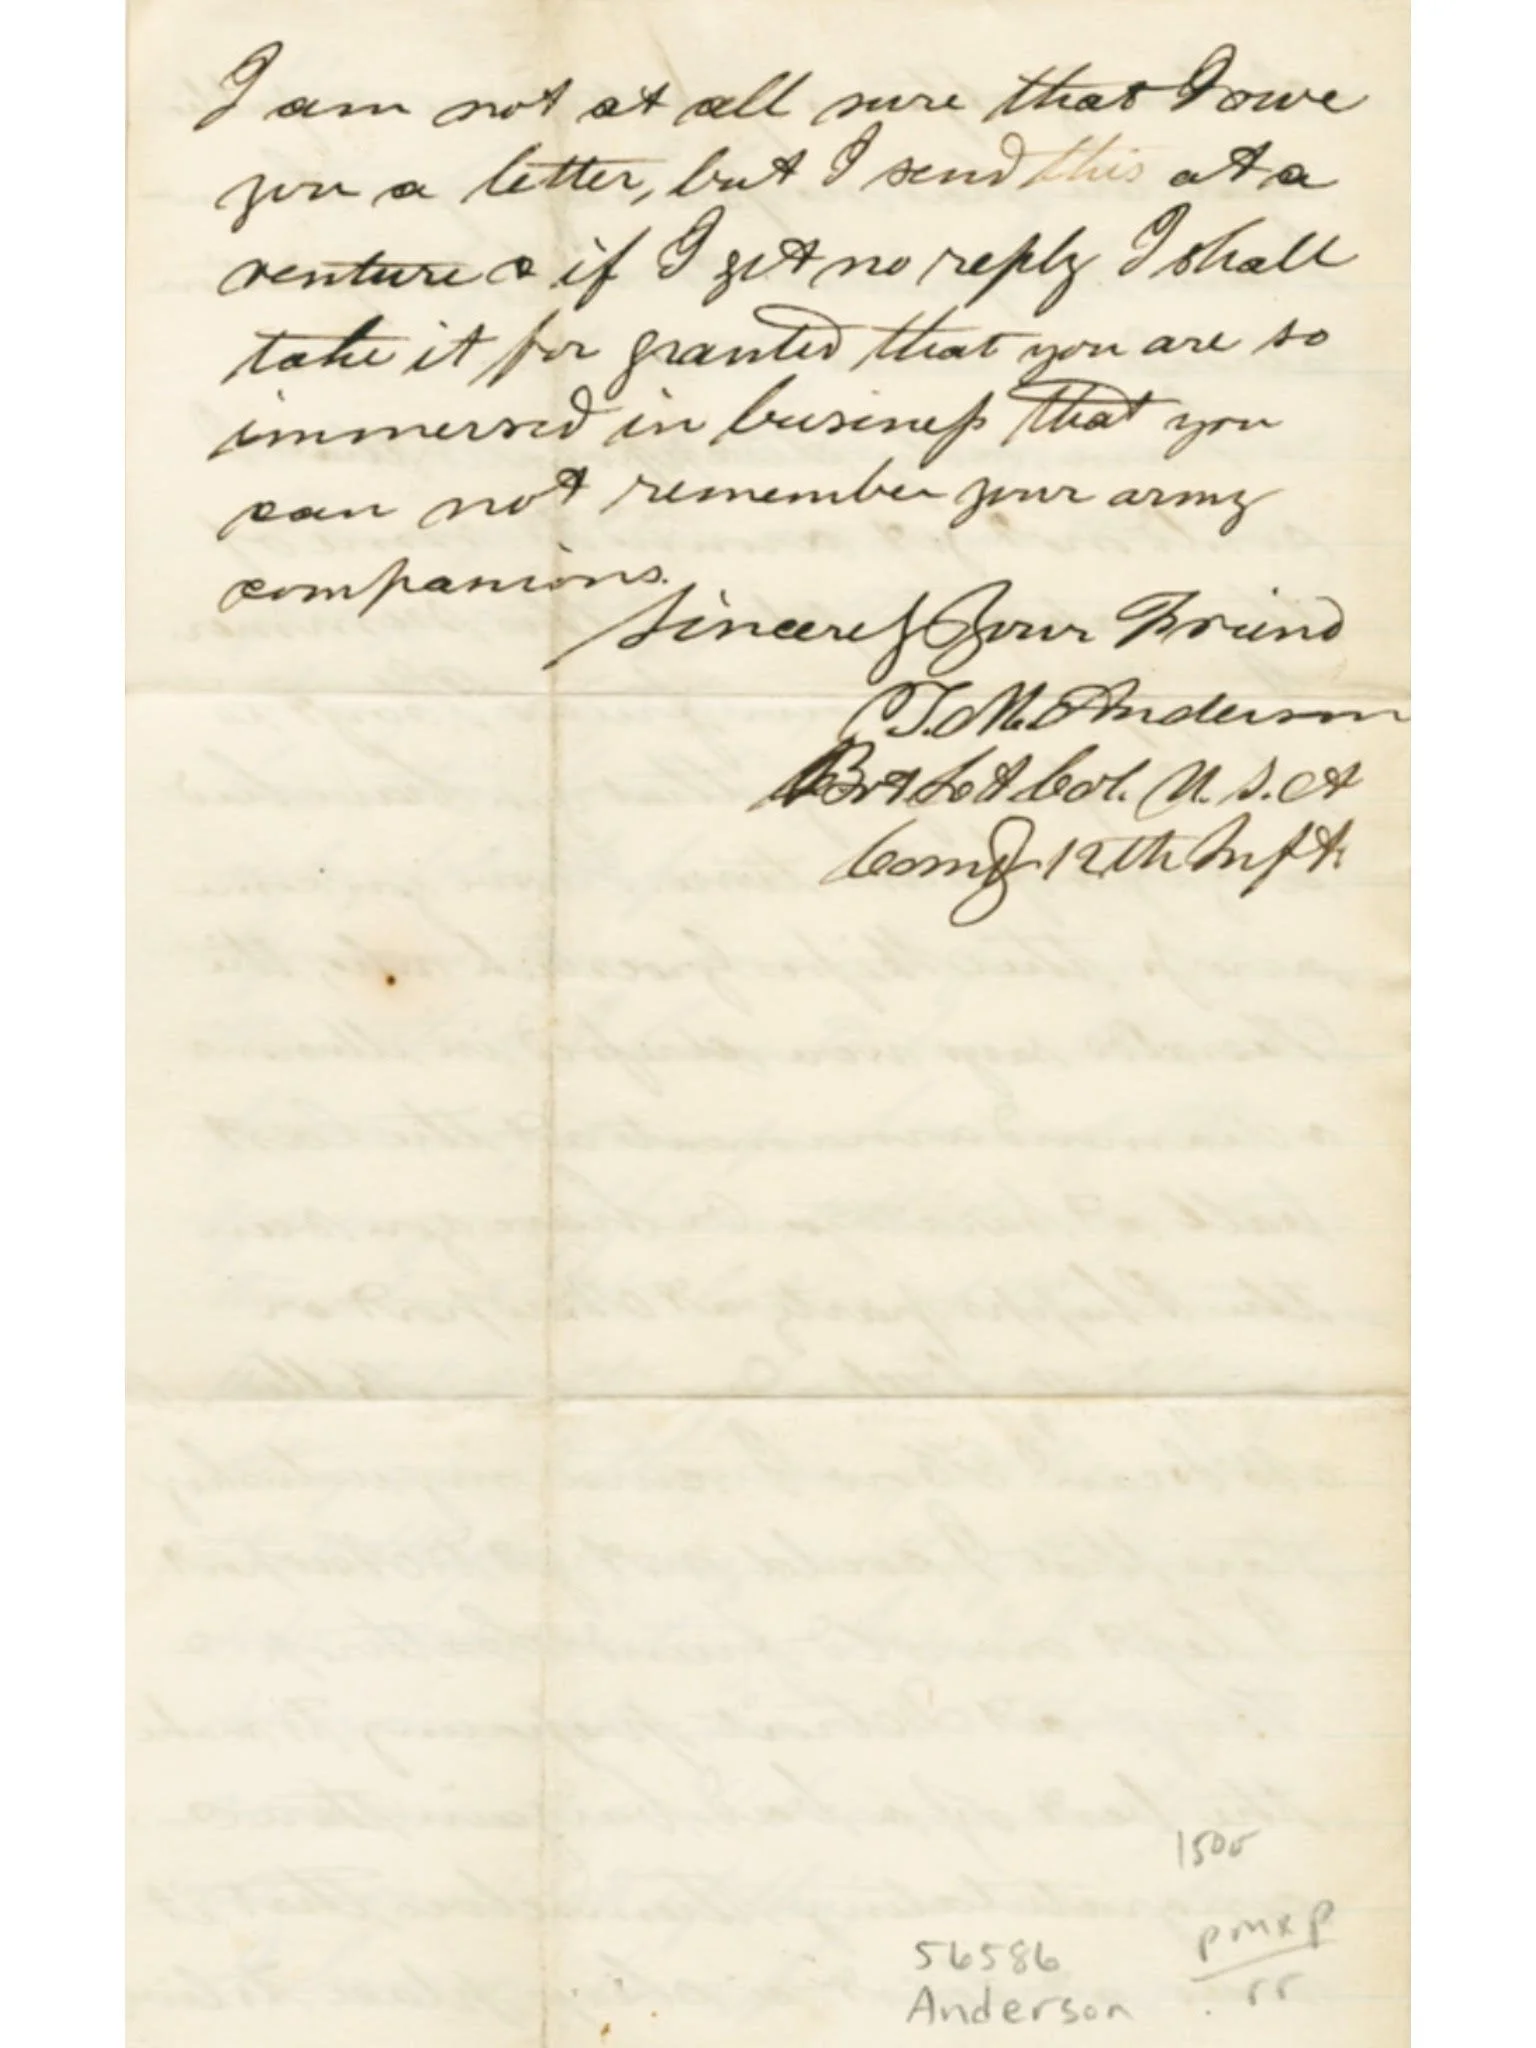 I am not at all sure that I owe
you a letter, but I send this at a
venture & if I get no reply I shall
take it for granted that you are so
immersed in business that you
can not remember your army
companions.
Sincerely Your Friend
T. M. Anderson
Bvt Lt Col. U. S. A
Comdg. 12th Inft.
1500
56586
Anderson